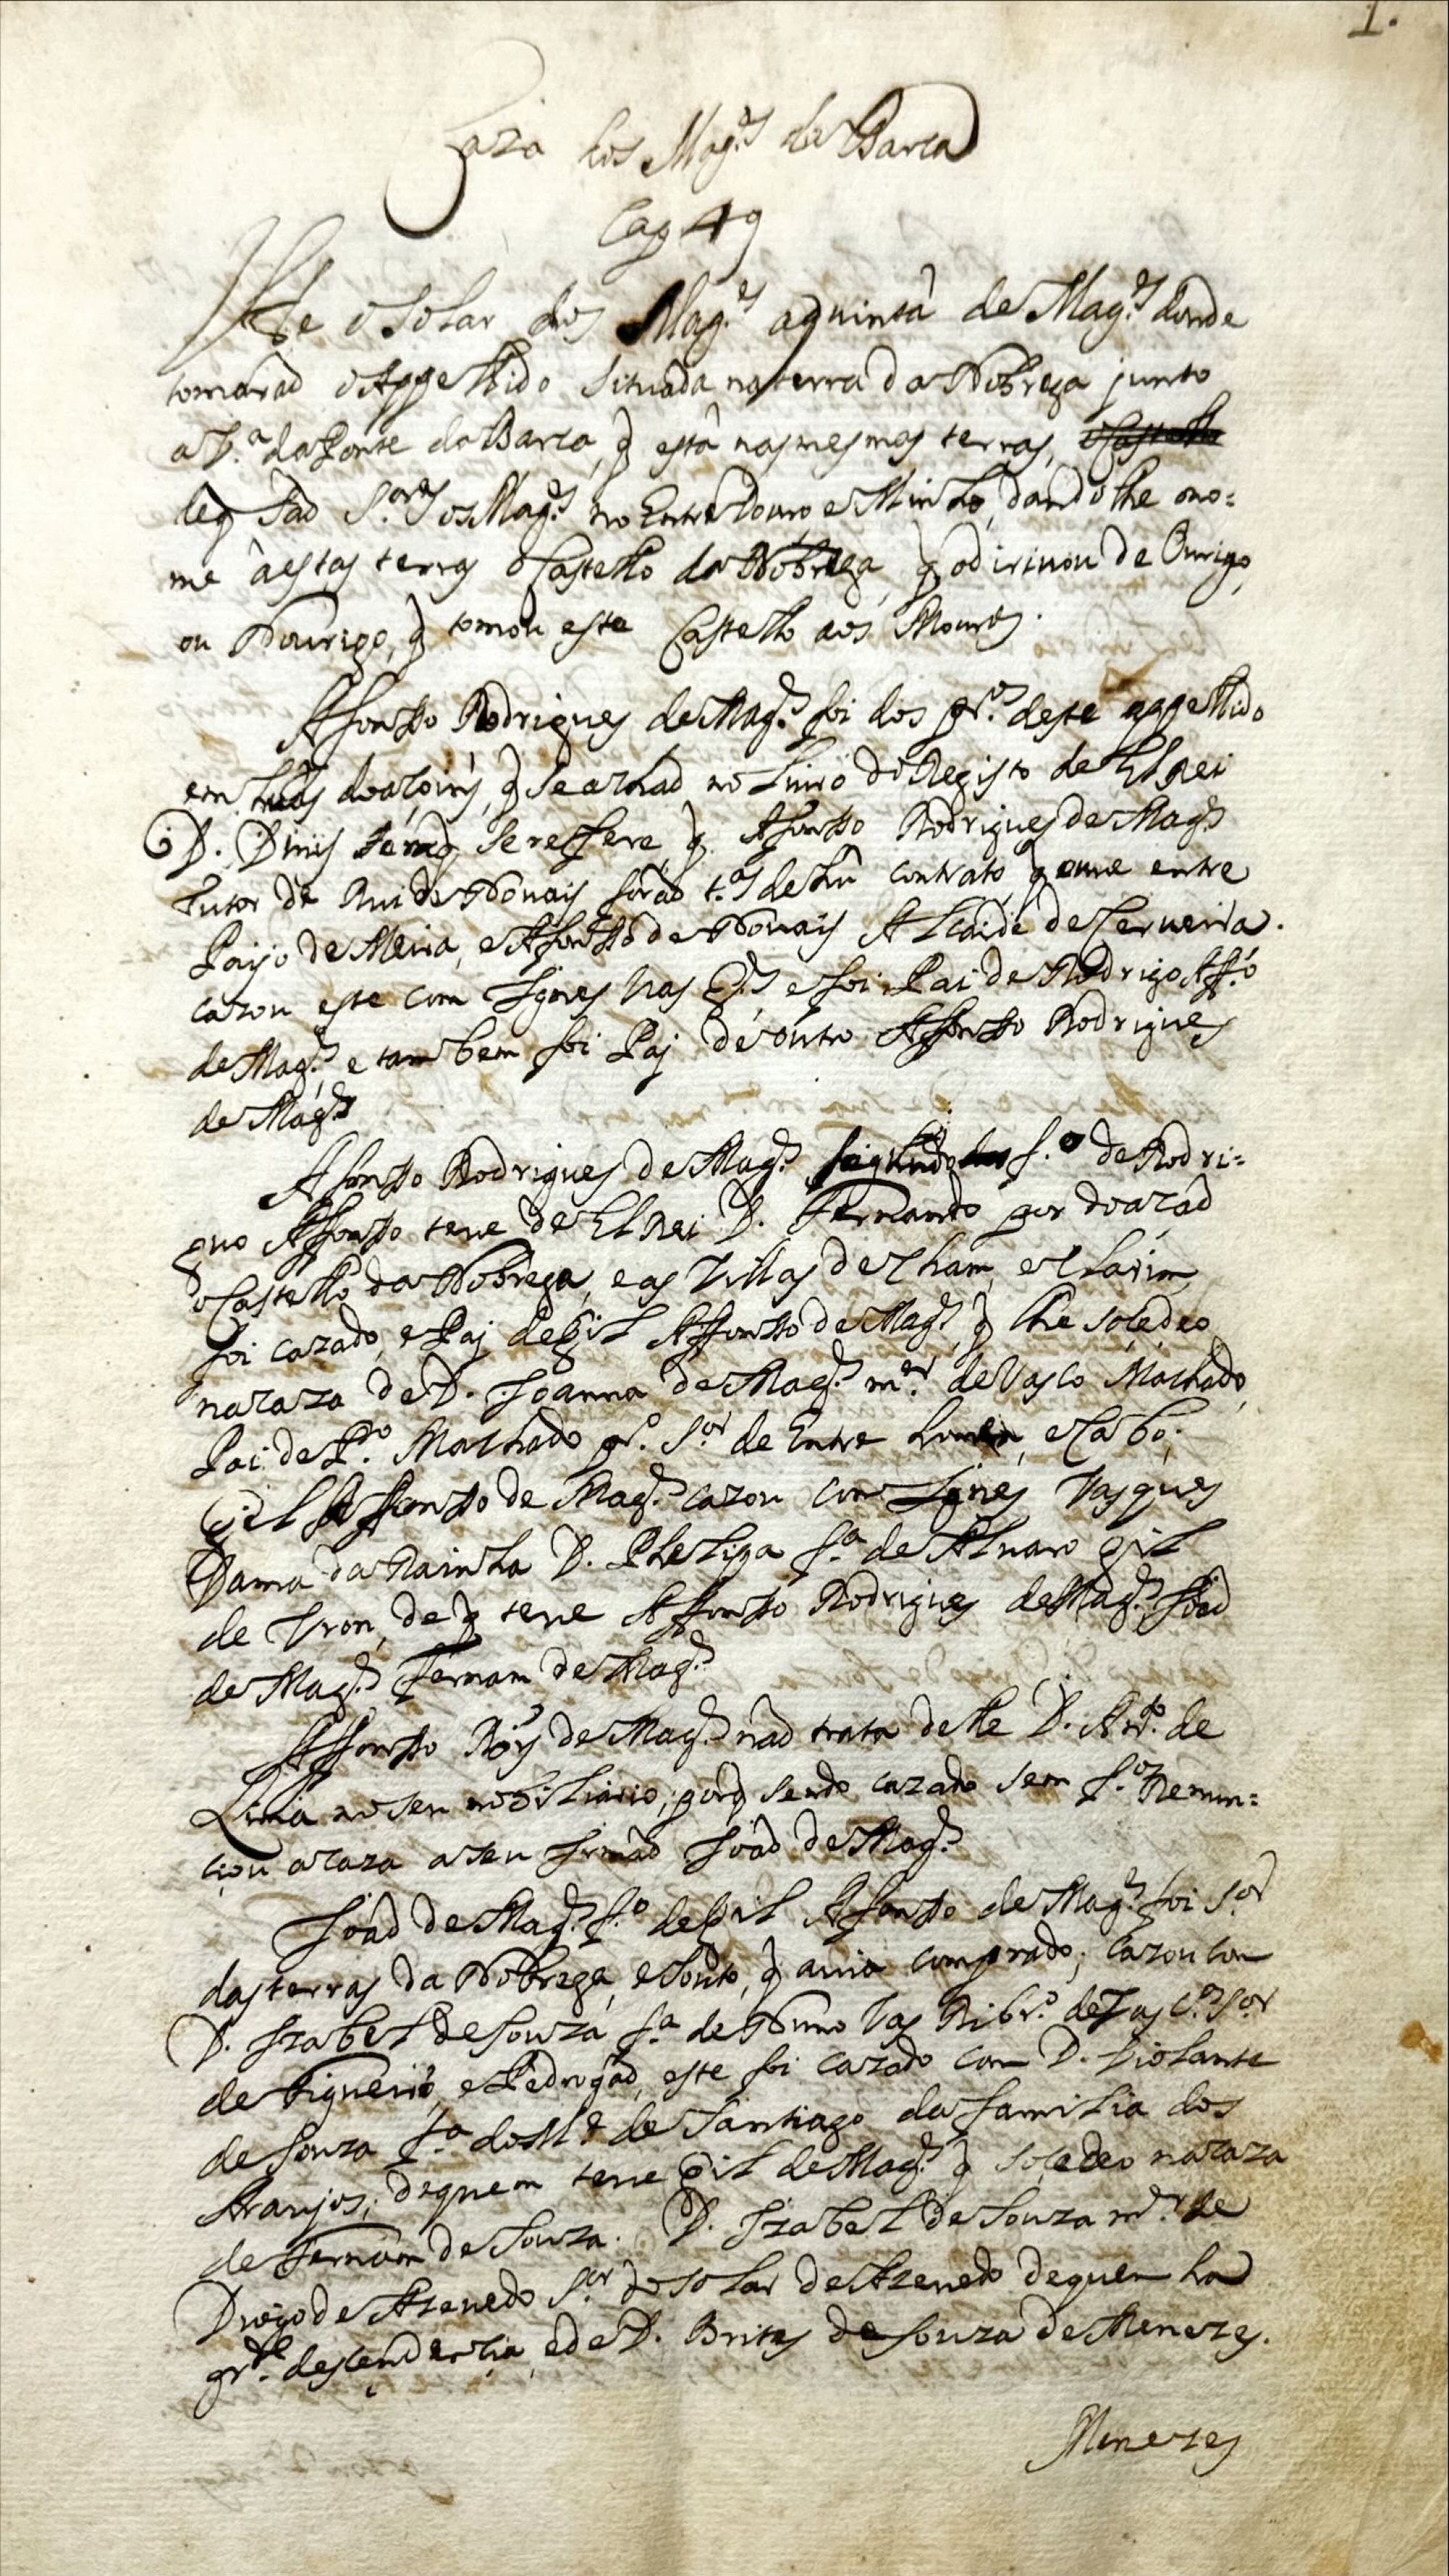 1.
Caza dos Mag.es da Barca
Cap 49
He o Solar dos Mag.es a quinta de Mag.es donde
tomaraõ o Appellido Situada na terra da Nobrega junto
a V.a da Ponte da Barca, q̃ está nas mesmas terras,
de q̃ Saõ S.res os Mag.es no Entre Douro e Minho, dandolhe o no=
me â estas terras o Castello da Nobrega, q̃ o dirivou de Ourigo,
ou Nourigo, q̃ tomou este Castello aos Mouros.
Afonso Rodrigues de Mag.es foi dos pr.os deste appellido
em huas doaçoins, q̃ se achaõ no Livro do Registo de El Rei
D. Dinis se refere, q̃ Afonso Rodrigues de Mag.es
Tutor de Rui de Novais foraõ t.as de hũ contrato, q̃ ouve entre
Paijo de Meira, e Afonso de Novais Alcaide de Cerveira.
cazou este com Ignes Vas e foi Pai de Rodrigo Aff.o
de Mag.es, e tambem foi Paj de outro Affonso Rodrigues
de Mag.es
Afonso Rodrigues de Mag.es f.o de Rodri=
guo Affonso teve de El Rei D. Fernando por doaçaõ
o Castello da Nobrega, e as Villas de
foi cazado, e Paj de Gil Affonso de Mag.es, q̃ lhe socedeo
na caza de D. Joanna de Mag.es m.er de Vasco Machado,
Pai de P.o Machado pr.o S.or de Entre homem, e Cabo;
Gil Affonso de Mag.es cazou com Ignes Vasques
Dama da Rainha D. Phelipa f.a de Alvaro Gil
de de q̃ teve Affonso Rodrigues de Mag.es, Joaõ
de Mag.es Fernam de Mag.es
Affonso Roiz de Mag.es naõ trata delle D. Ant.o de
Lima no seu nobiliario, porq̃ sendo cazado sem f.os Renun=
ciou a caza a seu Irmaõ Joaõ de Mag.es
Joaõ de Mag.es f.o de Gil Afonso de Mag.es foi S.or
das terras da Nobrega, e Souto, q̃ avia comprado; cazou com
D. Izabel de Souza f.a de Nuno Vas Ribr.o de Vas C.os S.or
de Figueiró, e Pedrogaõ, este foi cazado com D. Violante
de Souza f.a do M.e de Santiago da familia dos
Araujos; de quem teve Gil de Mag.es q̃ socedeo na caza
de Fernam de Souza. D. Izabel de Souza m.er de
Diogo de Azevedo S.or do solar de Azevedo de quem ha
gr.de descendencia, e de D. Brites de Souza de Menezes.
Menezes